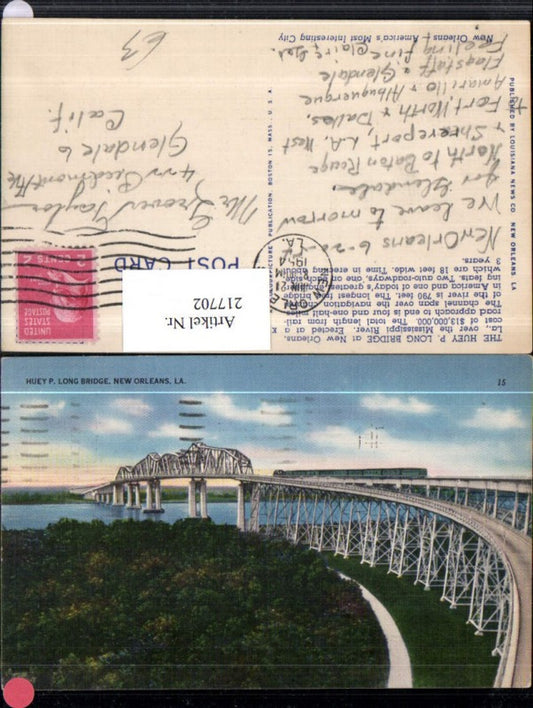 THE HUEY P. LONG BRIDGE at New Orleans,
La., over the Mississippi River. Erected at a
cost of $13,000,000. The total length from rail-
road approach to end is four and one-half miles.
The channel span over the navigation channel
of the river is 790 feet. The longest free bridge
in America and one of today's greatest engineer-
ing feats. Two auto-roadways, one on each side
which are 18 feet wide. Time in erecting about
3 years.
New Orleans 6-20-
We leave tomorrow
for Glendale.
North to Baton Rouge
& Shreveport, LA. West
to Fort Worth & Dallas,
Amarillo & Albuquerque
Flagstaff & Glendale
Feeling fine
New Orleans, America's Most Interesting City
PUBLISHED BY LOUISIANA NEWS CO NEW ORLEANS LA
PUBLICATION, BOSTON 15, MASS., U. S. A.
POST CARD
UNITED
STATES
POSTAGE
2 CENTS 2
NEW ORLEANS
JUN 21
LA.
Mr Grover Taylor
Glendale 6
Calif.
63
Artikel Nr.
217702
HUEY P. LONG BRIDGE, NEW ORLEANS, LA.
15